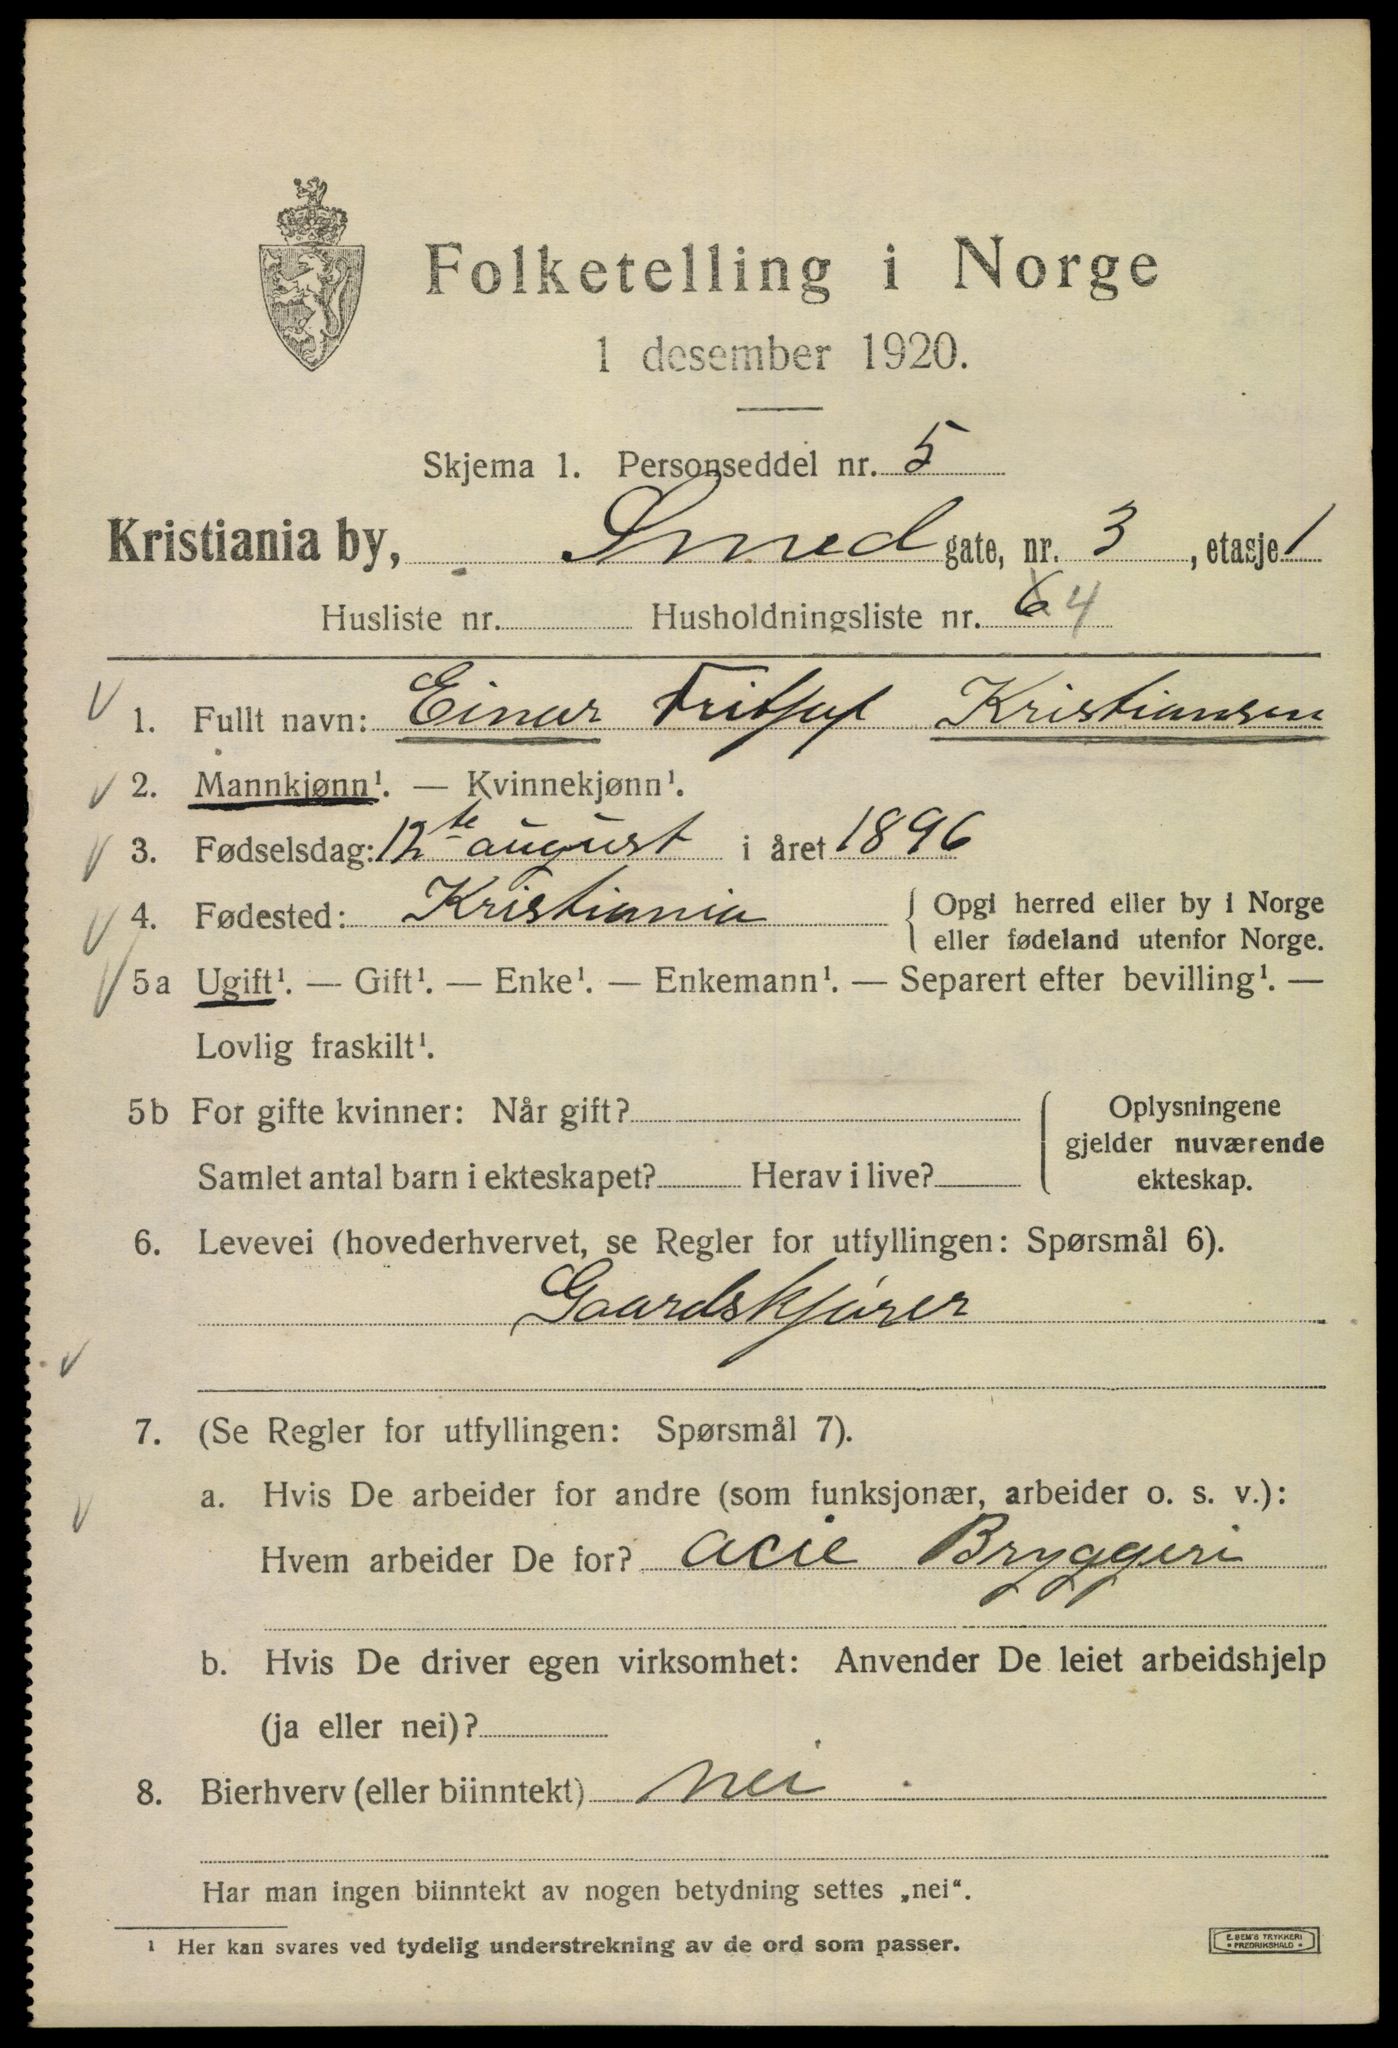 Folketelling i Norge
1 desember 1920.
Skjema 1. Personseddel nr. 5
Kristiania by, Smed gate, nr. 3, etasje 1
Husliste nr. Husholdningsliste nr. 6 4
1. Fullt navn: Einar Fritjof Kristiansen
2. Mannkjønn¹. — Kvinnekjønn¹.
3. Fødselsdag: 12te august i året 1896
4. Fødested: Kristiania { Opgi herred eller by i Norge
eller fødeland utenfor Norge.
5a Ugift¹. — Gift¹. — Enke¹. — Enkemann¹. — Separert efter bevilling¹. —
Lovlig fraskilt¹.
5b For gifte kvinner: Når gift? { Oplysningene
gjelder nuværende
Samlet antal barn i ekteskapet? Herav i live? ekteskap.
6. Levevei (hovederhvervet, se Regler for utfyllingen: Spørsmål 6).
Gaardskjører
7. (Se Regler for utfyllingen: Spørsmål 7).
a. Hvis De arbeider for andre (som funksjonær, arbeider o. s. v.):
Hvem arbeider De for? acie Bryggeri
b. Hvis De driver egen virksomhet: Anvender De leiet arbeidshjelp
(ja eller nei)?
8. Bierhverv (eller biinntekt) nei
Har man ingen biinntekt av nogen betydning settes „nei“.
¹ Her kan svares ved tydelig understrekning av de ord som passer.
E. SEM'S TRYKKERI
FREDRIKSHALD